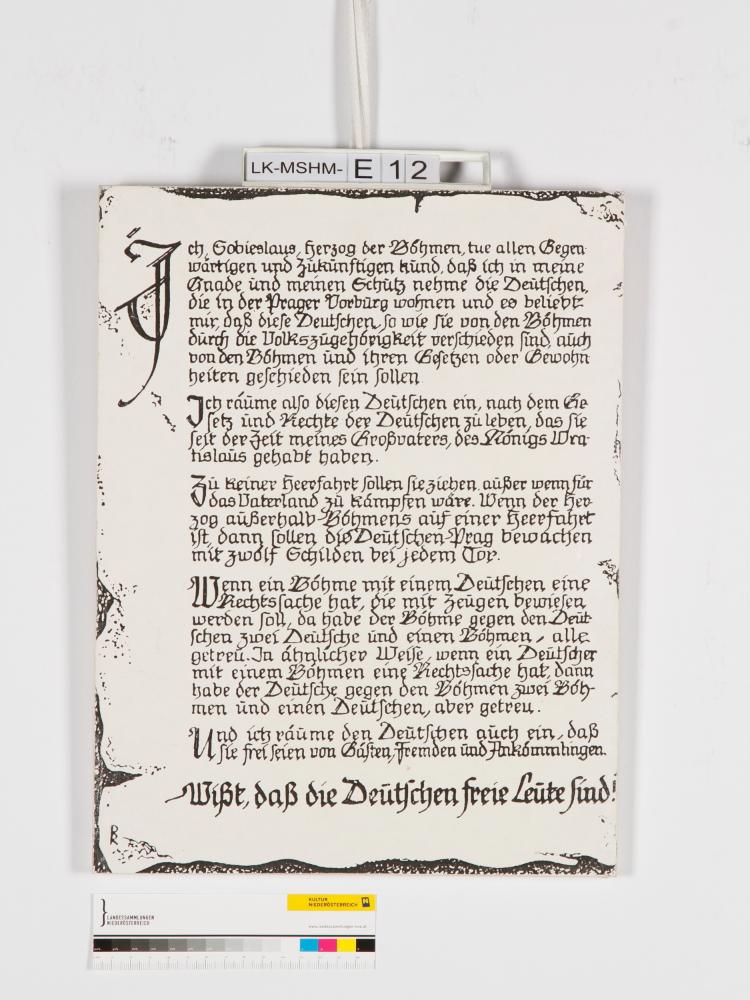 LK-MSHM- E 12
Ich, Sobieslaus, Herzog der Böhmen, tue allen Gegen
wärtigen und Zukünftigen kund, daß ich in meine
Gnade und meinen Schutz nehme die Deutschen,
die in der Prager Vorburg wohnen und es beliebt
mir, daß diese Deutschen, so wie sie von den Böhmen
durch die Volkszugehörigkeit verschieden sind, auch
von den Böhmen und ihren Gesetzen oder Gewohn
heiten geschieden sein sollen.
Ich räume also diesen Deutschen ein, nach dem Ge-
setz und Rechte der Deutschen zu leben, das sie
seit der Zeit meines Großvaters, des Königs Wra-
tislaus gehabt haben.
Zu keiner Heerfahrt sollen sie ziehen, außer wenn für
das Vaterland zu kämpfen wäre. Wenn der Her-
zog außerhalb Böhmens auf einer Heerfahrt
ist, dann sollen die Deutschen Prag bewachen
mit zwölf Schilden bei jedem Tor.
Wenn ein Böhme mit einem Deutschen eine
Rechtssache hat, die mit Zeugen bewiesen
werden soll, da habe der Böhme gegen den Deut-
schen zwei Deutsche und einen Böhmen, alle
getreu. In ähnlicher Weise, wenn ein Deutscher
mit einem Böhmen eine Rechtssache hat, dann
habe der Deutsche gegen den Böhmen zwei Böh-
men und einen Deutschen, aber getreu.
Und ich räume den Deutschen auch ein, daß
sie frei seien von Gästen, Fremden und Ankömmlingen.
Wißt, daß die Deutschen freie Leute sind!
LANDESSAMMLUNGEN
NIEDERÖSTERREICH
KULTUR
NIEDERÖSTERREICH